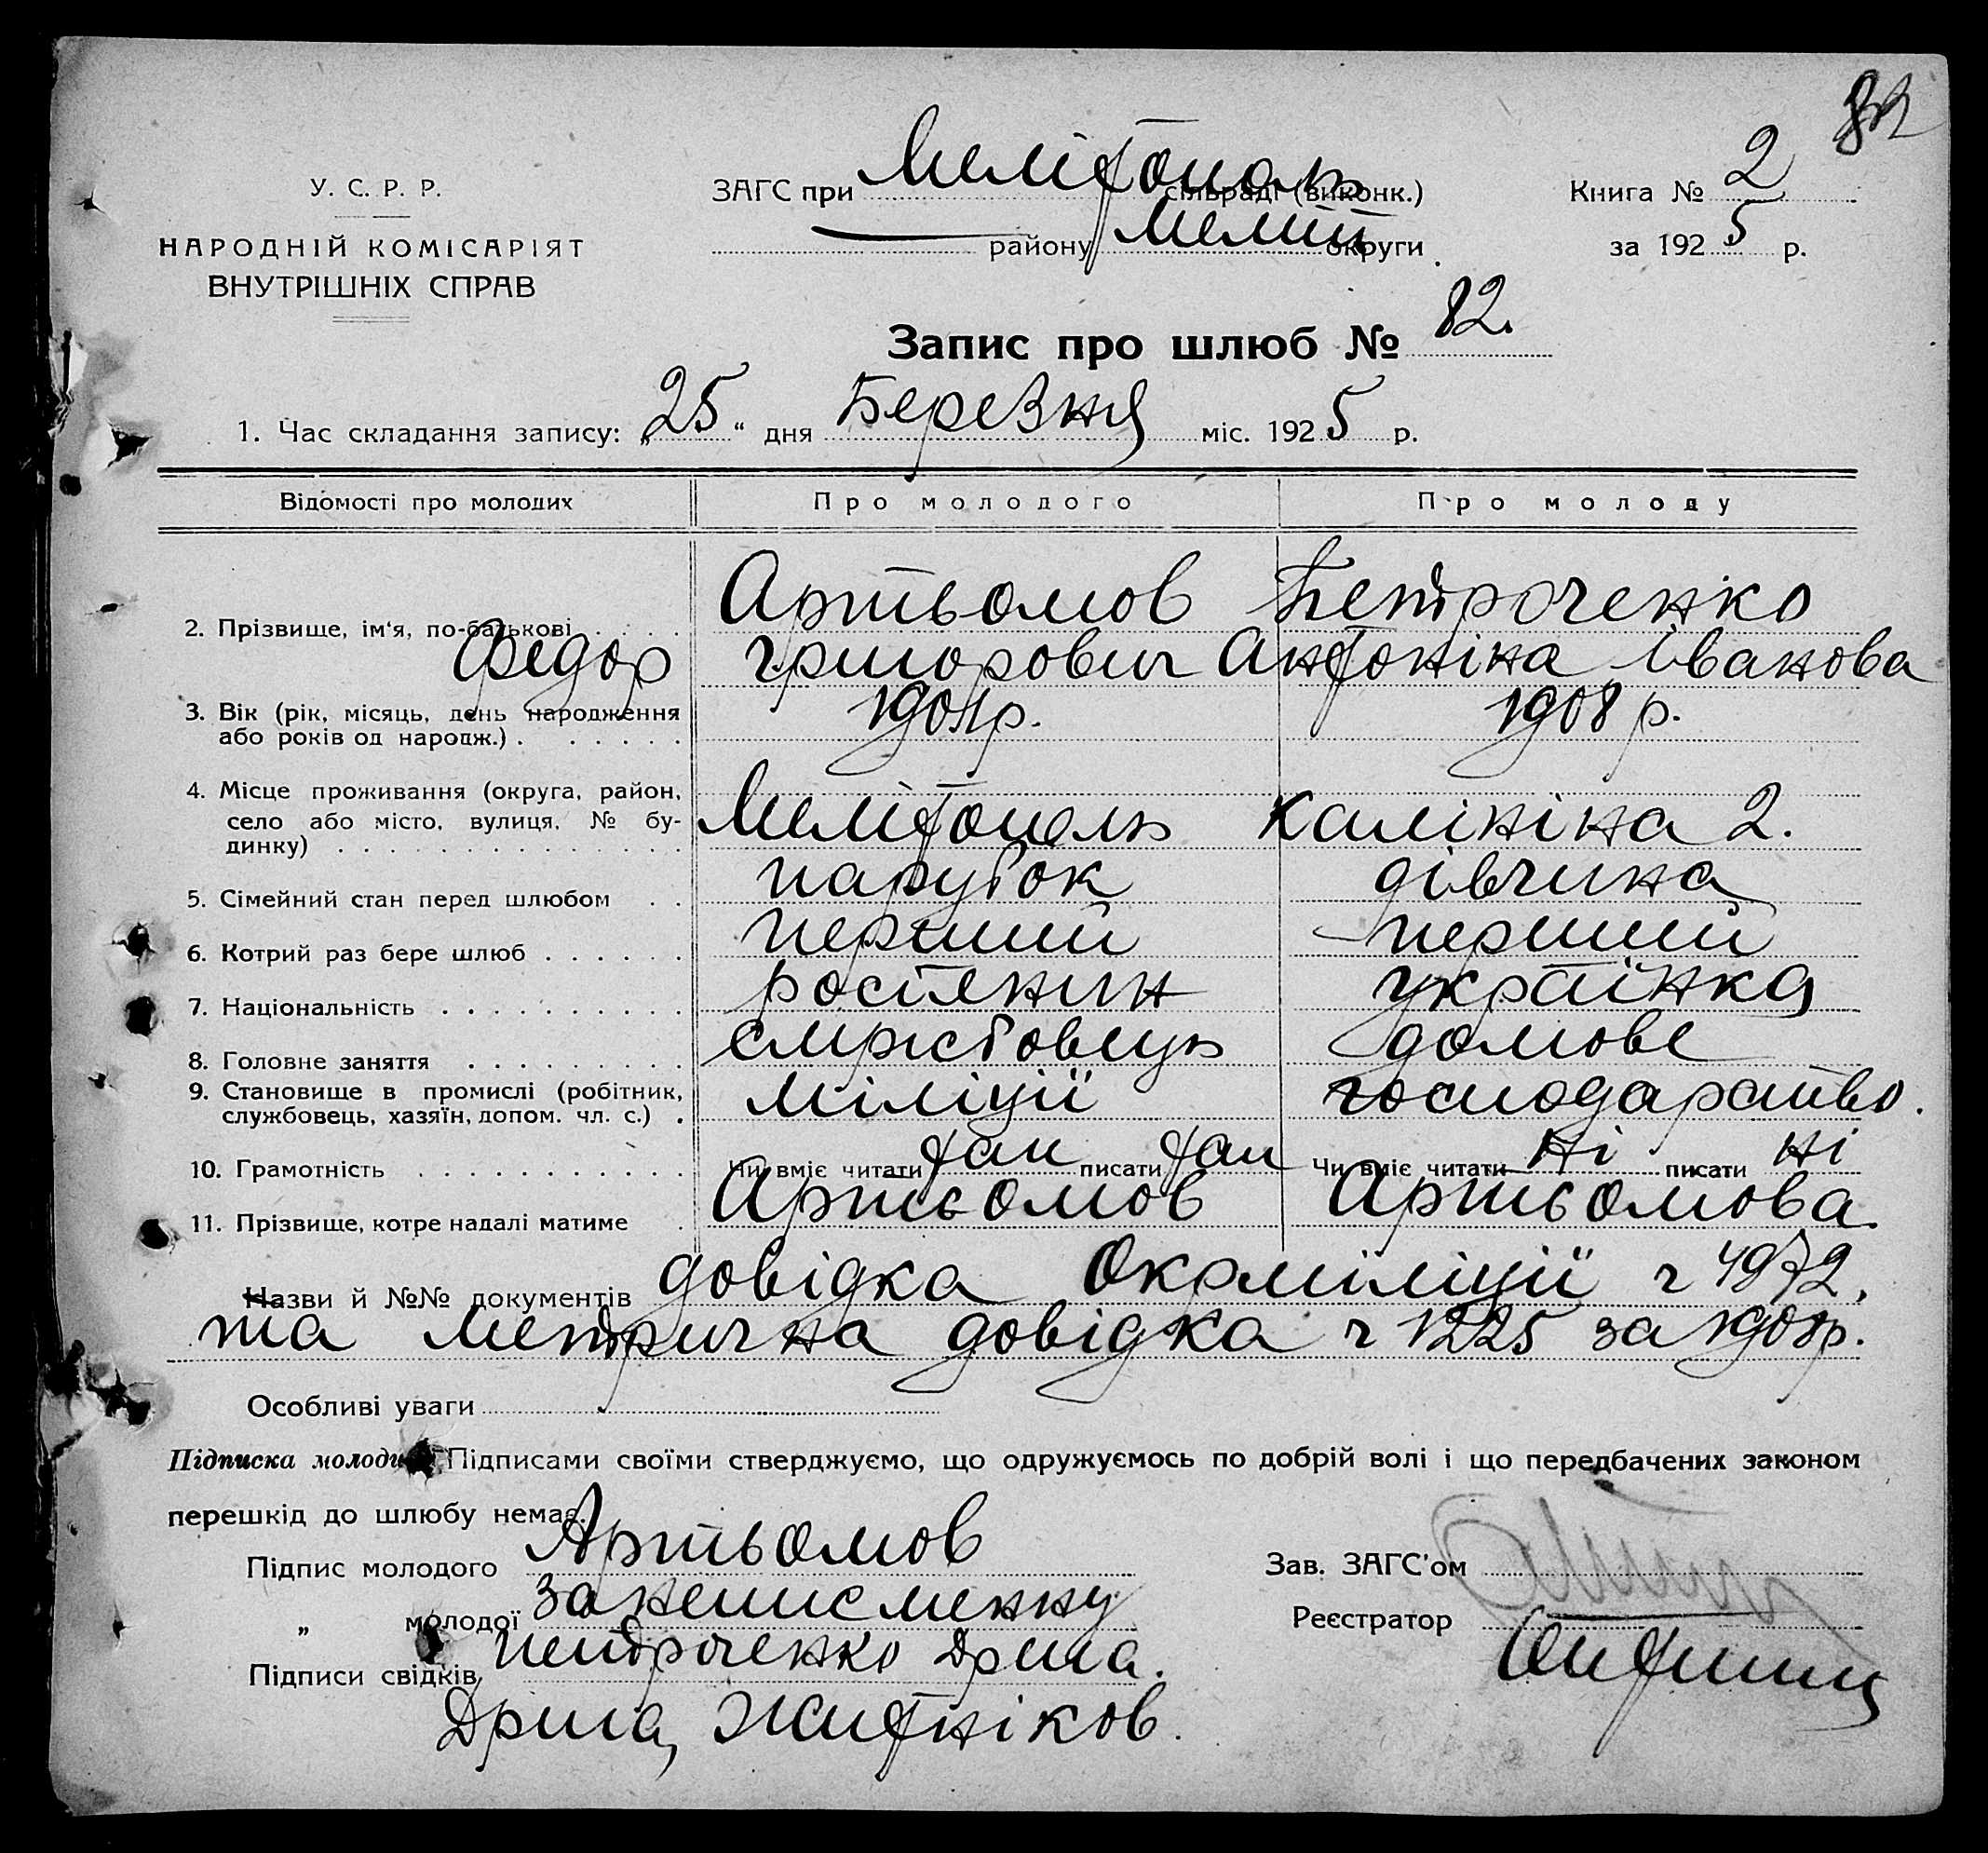 82
У. С. Р. Р.
НАРОДНІЙ КОМІСАРІЯТ
ВНУТРІШНІХ СПРАВ
ЗАГС при Мелітополь сільраді (виконк.)
району Меліт округи
Книга № 2
за 1925 р.
Запис про шлюб № 82.
1. Час складання запису: „25“ дня Березня міс. 1925 р.
Відомості про молодих Про молодого Про молоду
2. Прізвище, ім'я, по-батькові Артьомов Петроченко
Федор григорович Антоніна Іванова
3. Вік (рік, місяць, день народження 1901р. 1908 р.
або років од народж.)
4. Місце проживання (округа, район,
село або місто, вулиця, № бу- Мелітополь Калініна 2.
динку)
5. Сімейний стан перед шлюбом парубок дівчина
6. Котрий раз бере шлюб перший перший
7. Національність росіянин українка
8. Головне заняття домове
9. Становище в промислі (робітник, міліції господарство.
службовець, хазяїн, допом. чл. с.)
10. Грамотність Чи вміє читати так писати так Чи вміє читати ні писати ні
11. Прізвище, котре надалі матиме Артьомов Артьомова.
Назви й №№ документів довідка Окрміліції ч 4972,
та метрична довідка ч 1225 за 1908р.
Особливі уваги
Підписка молодих Підписами своїми стверджуємо, що одружуємось по добрій волі і що передбачених законом
перешкід до шлюбу немає.
Підпис молодого Артьомов
„ молодої за неписменну
Підписи свідків Петроченко Дрига.
Дрига, Житніков.
Зав. ЗАГС'ом
Реєстратор